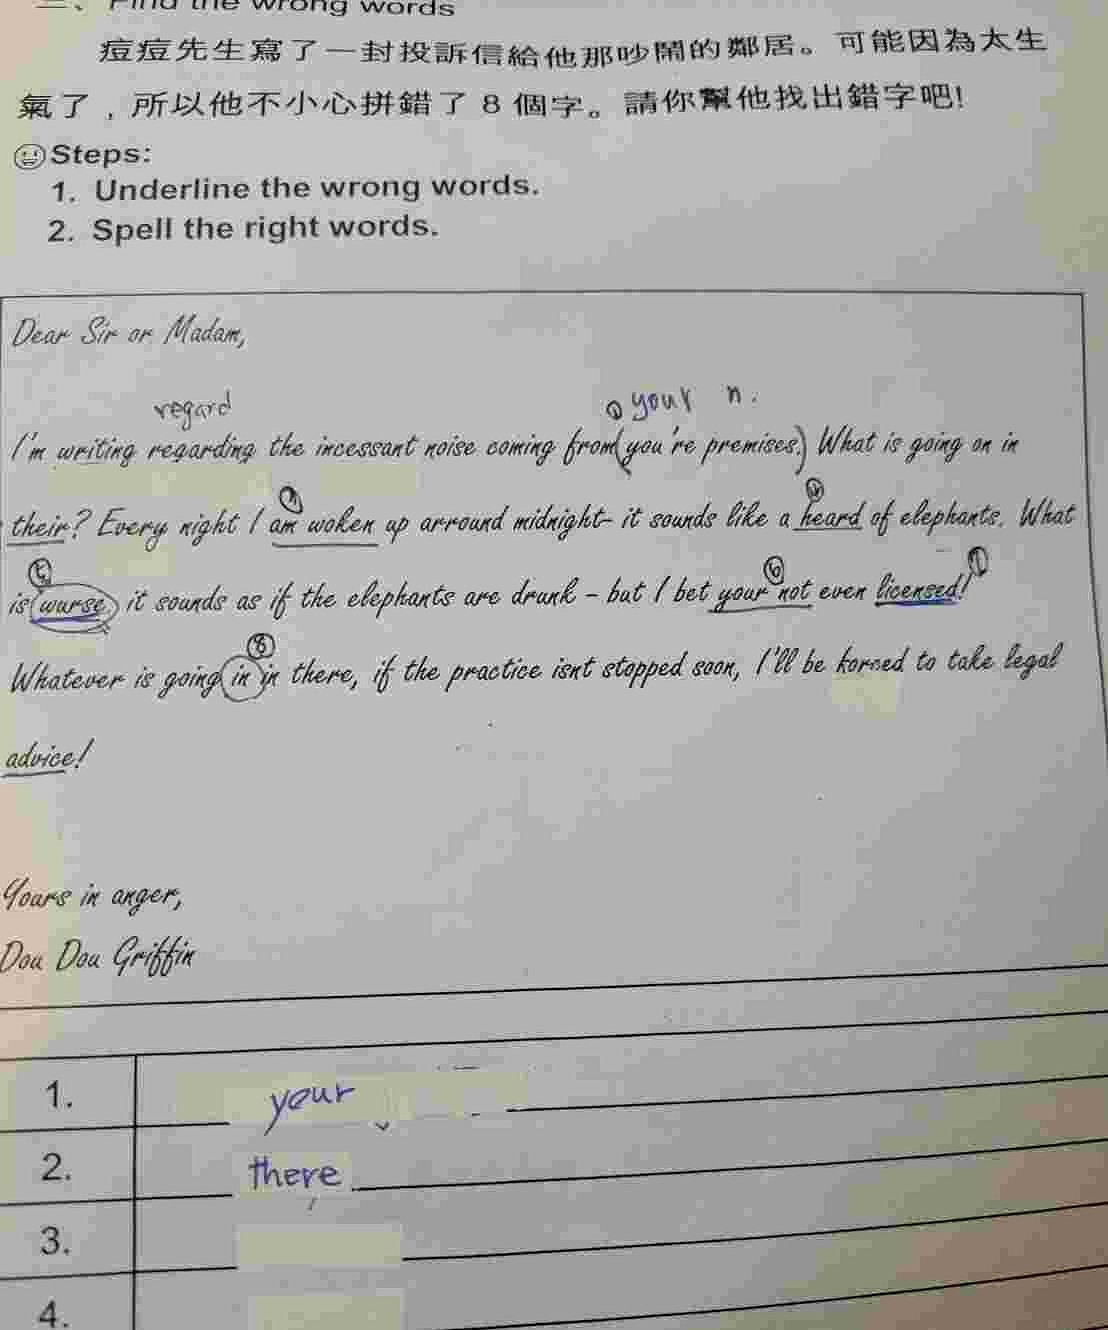 二、Find the wrong words
痘痘先生寫了一封投訴信給他那吵鬧的鄰居。可能因為太生
氣了,所以他不小心拼錯了 8 個字。請你幫他找出錯字吧!
Steps:
1. Underline the wrong words.
2. Spell the right words.
Dear Sir or Madam,
regard your n.
I'm writing regarding the incessant noise coming from (you're premises.) What is going on in
their? Every night I am woken up arround midnight- it sounds like a heard of elephants. What
is wurse it sounds as if the elephants are drunk - but I bet your not even licensed!
Whatever is going in in there, if the practice isnt stopped soon, I'll be forced to take legal
advice!
Yours in anger,
Dou Dou Griffin
1. your
2. there
3.
4.